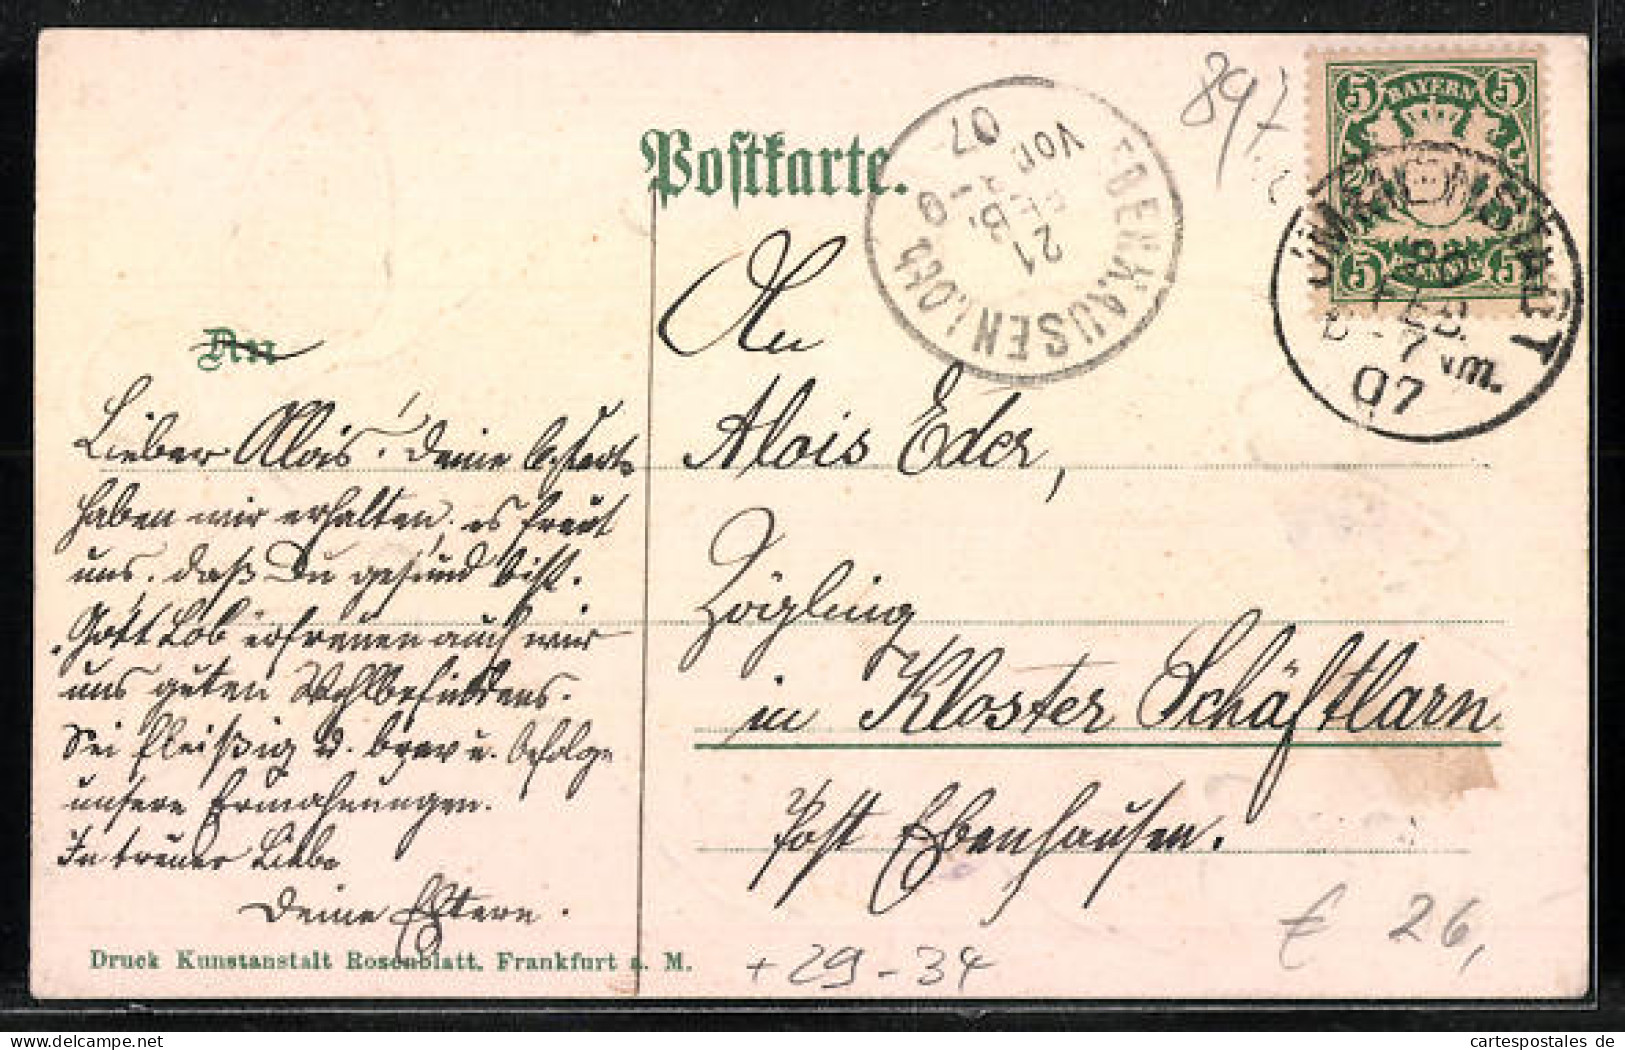 Postkarte.
897.
5 BAYERN 5
5 PFENNIG 5
20
FEB.
6-7 Nm.
07
EBENHAUSEN I. OBB.
21
FEB.
Vor 8-9
07
An
An
Alois Eder,
Zögling
in Kloster Schäftlarn
Post Ebenhausen.
Lieber Alois! Deine Karte
haben wir erhalten, es freut
uns, daß Du gesund bist.
Gott Lob erfreuen auch wir
uns guten Wohlbefindens.
Sei fleißig u. brav u. befolge
unsere Ermahnungen.
In treuer Liebe
Deine Eltern.
Druck Kunstanstalt Rosenblatt, Frankfurt a. M.
+ 29 - 34
€ 26,
cartespostales de